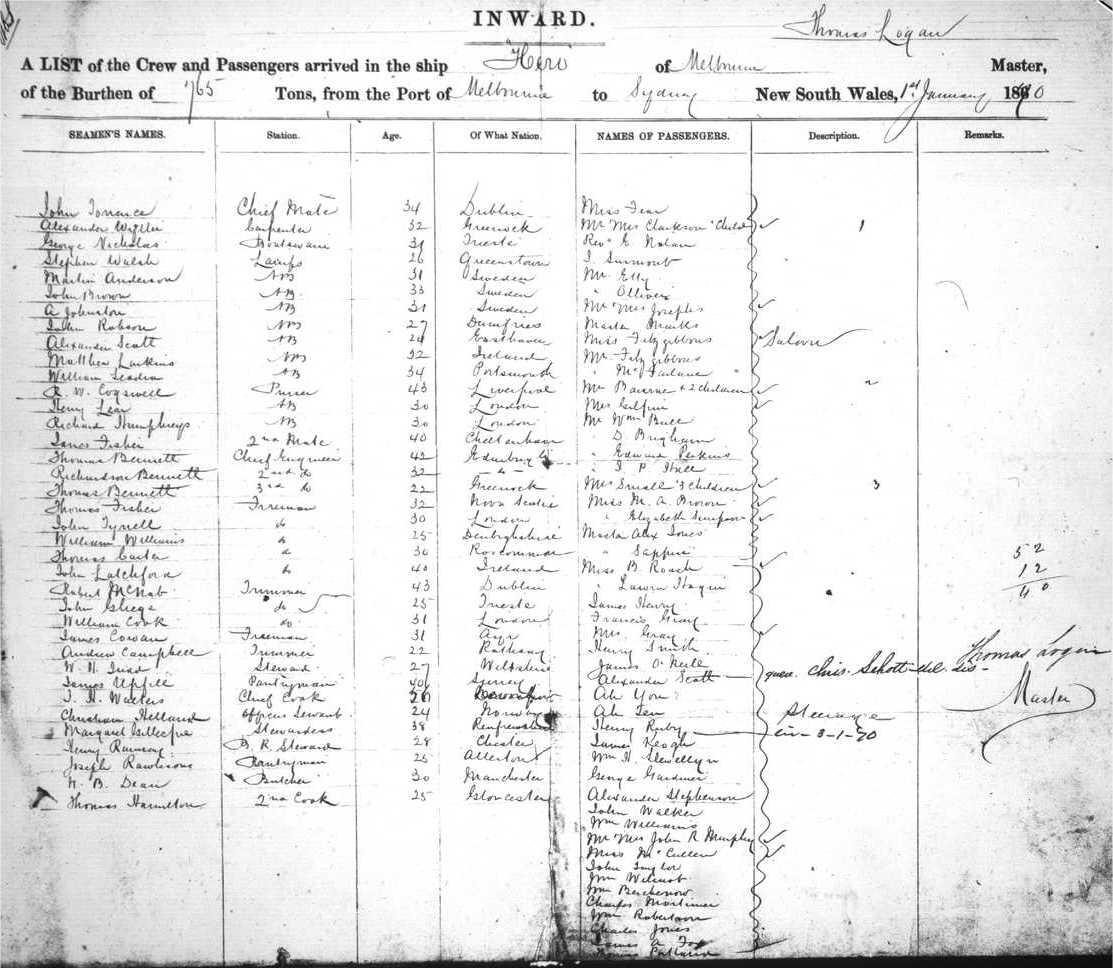 INWARD.
Thomas Logan
A LIST of the Crew and Passengers arrived in the ship Hero of Melbourne Master,
of the Burthen of 765 Tons, from the Port of Melbourne to Sydney New South Wales, 1st January 1870
SEAMEN'S NAMES. Station. Age. Of What Nation. NAMES OF PASSENGERS. Description. Remarks.
John Torrance Chief Mate 34 Dublin Miss Fear
Alexander Carpenter 32 Greenock Mr Mrs Clarkson Child 1
George Nicholas Boatswain 31 Trieste Revd E. Nolan
Stephen Walsh Lamps 26 Queenstown J. Surmont
Martin Anderson AB 31 Sweden Mr. Etty
John Brown AB 33 Sweden " Ollivier
A Johnston AB 31 Sweden Mr Mrs Josephs
John Robson AB 27 Dumfries Master Marks
Alexander Scott AB 24 Easthaven Miss Fitzgibbons Saloon
Matthew Larkins AB 32 Ireland Mr Fitzgibbons
William AB 34 Portsmouth " McFarlane "
R. W. Cogswell Purser 43 Liverpool Mr + 2 children 2
Henry Lear AB 30 London Mrs Gilpin
Richard Humphreys AB 30 London Mr Wm Bull
James Fisher 2nd Mate 40 Cheltenham " D. Brigham
Thomas Bennett Chief Engineer 42 Edinburgh " Edward Perkins
Richardson Bennett 2nd do 32 " J P Hill
Thomas Bennett 3rd do 22 Greenock Mrs Small 3 children 3
Thomas Fisher Fireman 32 Nova Scotia Miss M. A Brown
John Tyrell do 30 London " Elizabeth Simpson
William Williams do 25 Denbighshire Masta Alex Jones
Thomas Carter do 30 Roscommon " Sapphie 52
John Latchford do 40 Ireland Miss B Roach 12
Robert McNab Trimmer 43 Dublin " Laura 40
John Gliege do 25 Trieste James Henry
William Cook do 31 London Francis Gray
James Cowan Fireman 31 Ayr Mrs. Gray
Andrew Campbell Trimmer 22 Rathany Henry Smith Thomas Logan
W. H. Steward 27 Wiltshire James O'Neill quer. Chris. Schott - del. dis -
James Upfill Pantryman 40 Surrey Alexander Scott Master
J. H. Walters Chief Cook 26 Ah You
Christian Helland Officers Servant 24 Norway Ah Len Steerage
Margaret Gillespie Stewardess 38 Renfrewshire Henry Ruby 3-1-70
Henry Ramsay B. R. Steward 28 Chester James Keogh
Joseph Rawlinsons Pantryman 25 Allerton Wm H. Llewellyn
W. B. Dean Butcher 30 Manchester George Gardiner
Thomas Hamilton 2nd Cook 25 Gloucester Alexander Stephenson
John Walker
Wm Williams
Mr Mrs John R Murphy
Miss McCullen
John Taylor
Wm Wilmot
Wm
Charles Mortimer
Wm Robertson
Charles Jones
James A Fox
Thomas